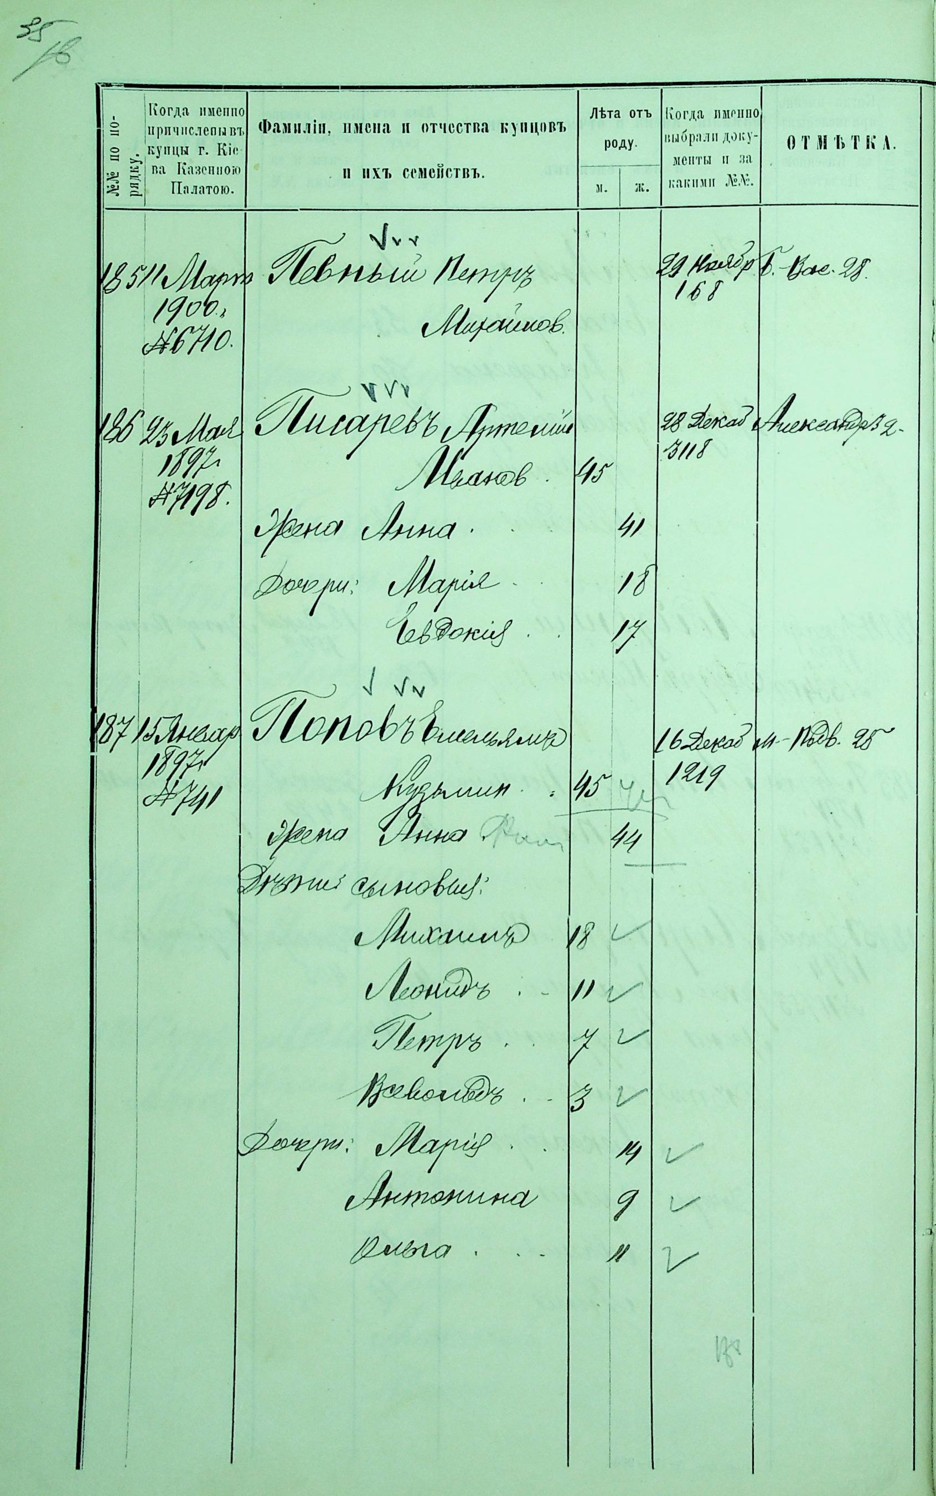 35
№№ по по-
рядку.
Когда именно
причислены въ
купцы г. Кіе-
ва Казенною
Палатою.
Фамиліи, имена и отчества купцовъ
и ихъ семействъ.
Лѣта отъ
роду.
м.
ж.
Когда именно
выбрали доку-
менты и за
какими №№.
ОТМѢТКА.
185 11 Март Певный Петръ 29 Ноябр Б.-Вас. 28.
1900г Михайлов. 168
№6710.
186 23 Мая Писаревъ Артемій 28 Декаб Александр. 2-
1897г Иванов. 45 3118
№7198.
Жена Анна. 41
Дочери: Марія 18
Евдокія 17
187 15 Январ Поповъ Емельянъ 16 Декаб М-Подв. 25
1897г Кузьмин. 45 1219
№741
Жена Анна 44
Дѣти: сыновья:
Михаилъ 18
Леонидъ 11
Петръ 7
Всеволодъ 3
Дочери: Марія 14
Антонина 9
Ольга 11